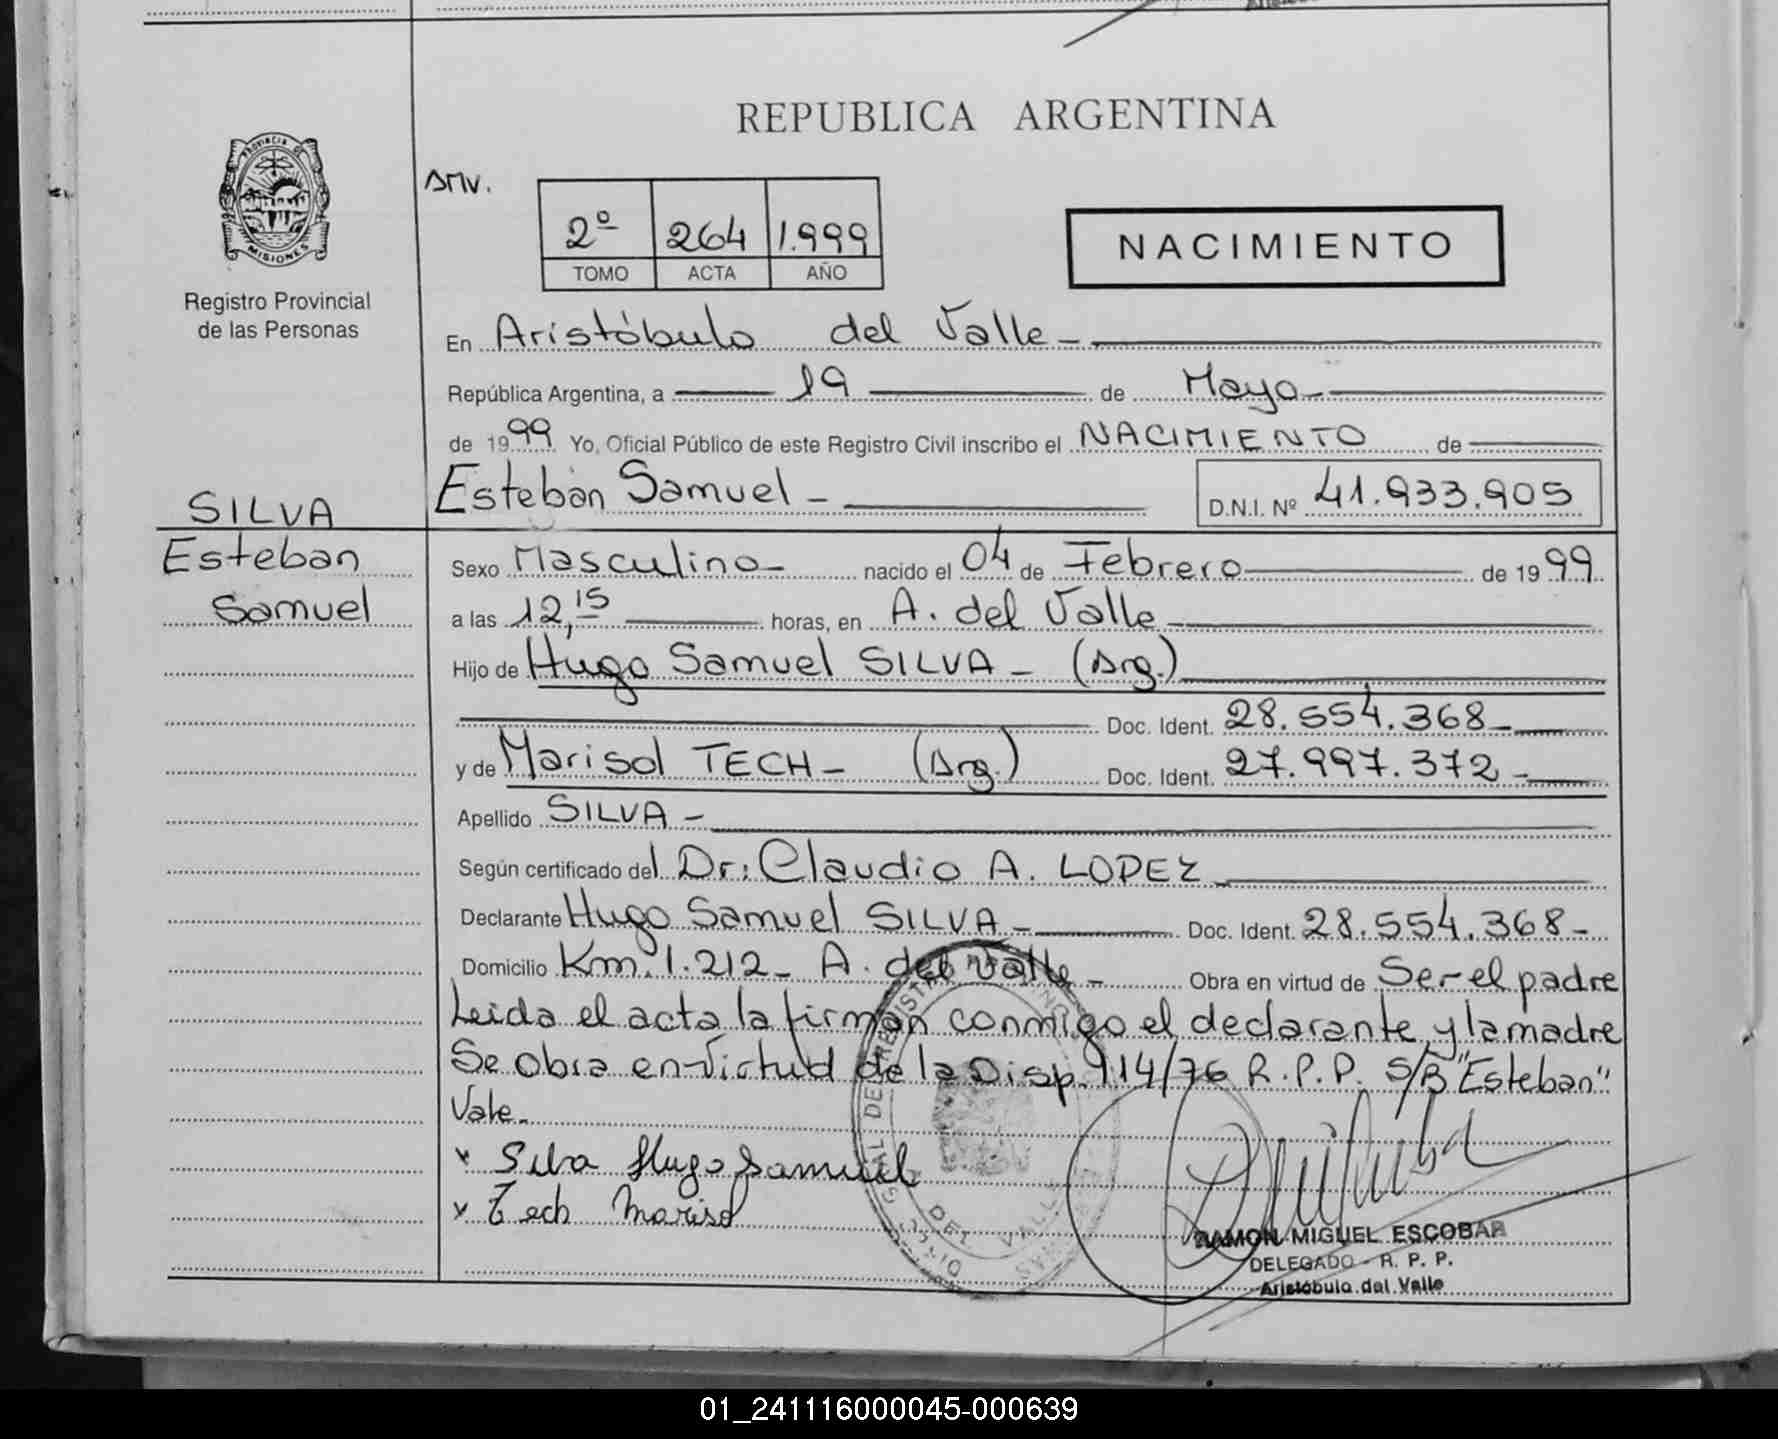 REPUBLICA ARGENTINA
PROVINCIA DE
MISIONES
Registro Provincial
de las Personas
SMV.
2º 264 1.999
TOMO ACTA AÑO
NACIMIENTO
En Aristóbulo del Valle -
República Argentina, a 19 de Mayo -
de 1999 Yo, Oficial Público de este Registro Civil inscribo el NACIMIENTO de
Esteban Samuel - D.N.I. Nº 41.933.905
SILVA
Esteban
Samuel
Sexo Masculino - nacido el 04 de Febrero de 1999
a las 12,15 horas, en A. del Valle -
Hijo de Hugo Samuel SILVA - (Arg.)
Doc. Ident. 28.554.368 -
y de Marisol TECH - (Arg.) Doc. Ident. 27.997.372 -
Apellido SILVA -
Según certificado del Dr: Claudio A. LOPEZ -
Declarante Hugo Samuel SILVA - Doc. Ident. 28.554.368 -
Domicilio Km. 1.212 - A. del Valle - Obra en virtud de Ser el padre
Leida el acta la firman conmigo el declarante y la madre
Se Obra en Virtud de la Disp. 914/76 R.P.P. S/B "Esteban"
Vale.
x Silva Hugo Samuel
x Tech Marisol
DEL VALLE
RAMON MIGUEL ESCOBAR
DELEGADO - R. P. P.
Aristóbulo del Valle
01_241116000045-000639